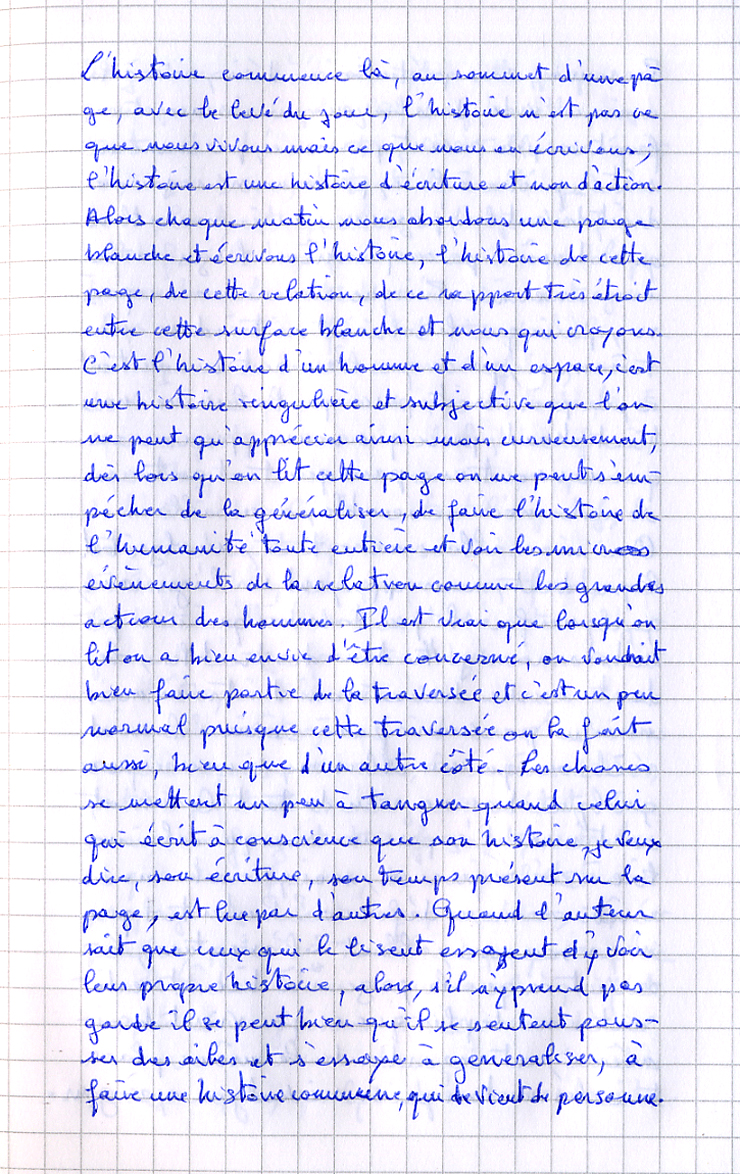 L'histoire commence là, au sommet d'une pa
ge, avec le levé du jour, l'histoire n'est pas ce
que nous vivons mais ce que nous en écrivons ;
l'histoire est une histoire d'écriture et non d'action.
Alors chaque matin nous abordons une page
blanche et écrivons l'histoire, l'histoire de cette
page, de cette relation, de ce rapport très étroit
entre cette surface blanche et nous qui crayons.
C'est l'histoire d'un homme et d'un espace, c'est
une histoire singulière et subjective que l'on
ne peut qu'apprécier ainsi mais curieusement,
dès lors qu'on lit cette page on ne peut s'em-
pécher de la généraliser, de faire l'histoire de
l'humanité toute entière et voir les micros
évènements de la relation comme les grandes
actions des hommes. Il est vrai que lorsqu'on
lit on a bien envie d'être concerné, on voudrait
bien faire partie de la traversée et c'est un peu
normal puisque cette traversée on la fait
aussi, bien que d'un autre côté. Les choses
se mettent un peu à tanguer quand celui
qui écrit à conscience que son histoire, je veux
dire, son écriture, son temps présent sur la
page, est lue par d'autres. Quand l'auteur
sait que ceux qui le lisent essayent d'y voir
leur propre histoire, alors, s'il n'y prend pas
garde il se peut bien qu'il se sentent pous-
ser des ailes et s'essaye à generaliser, à
faire une histoire commune, qui devient de personne.